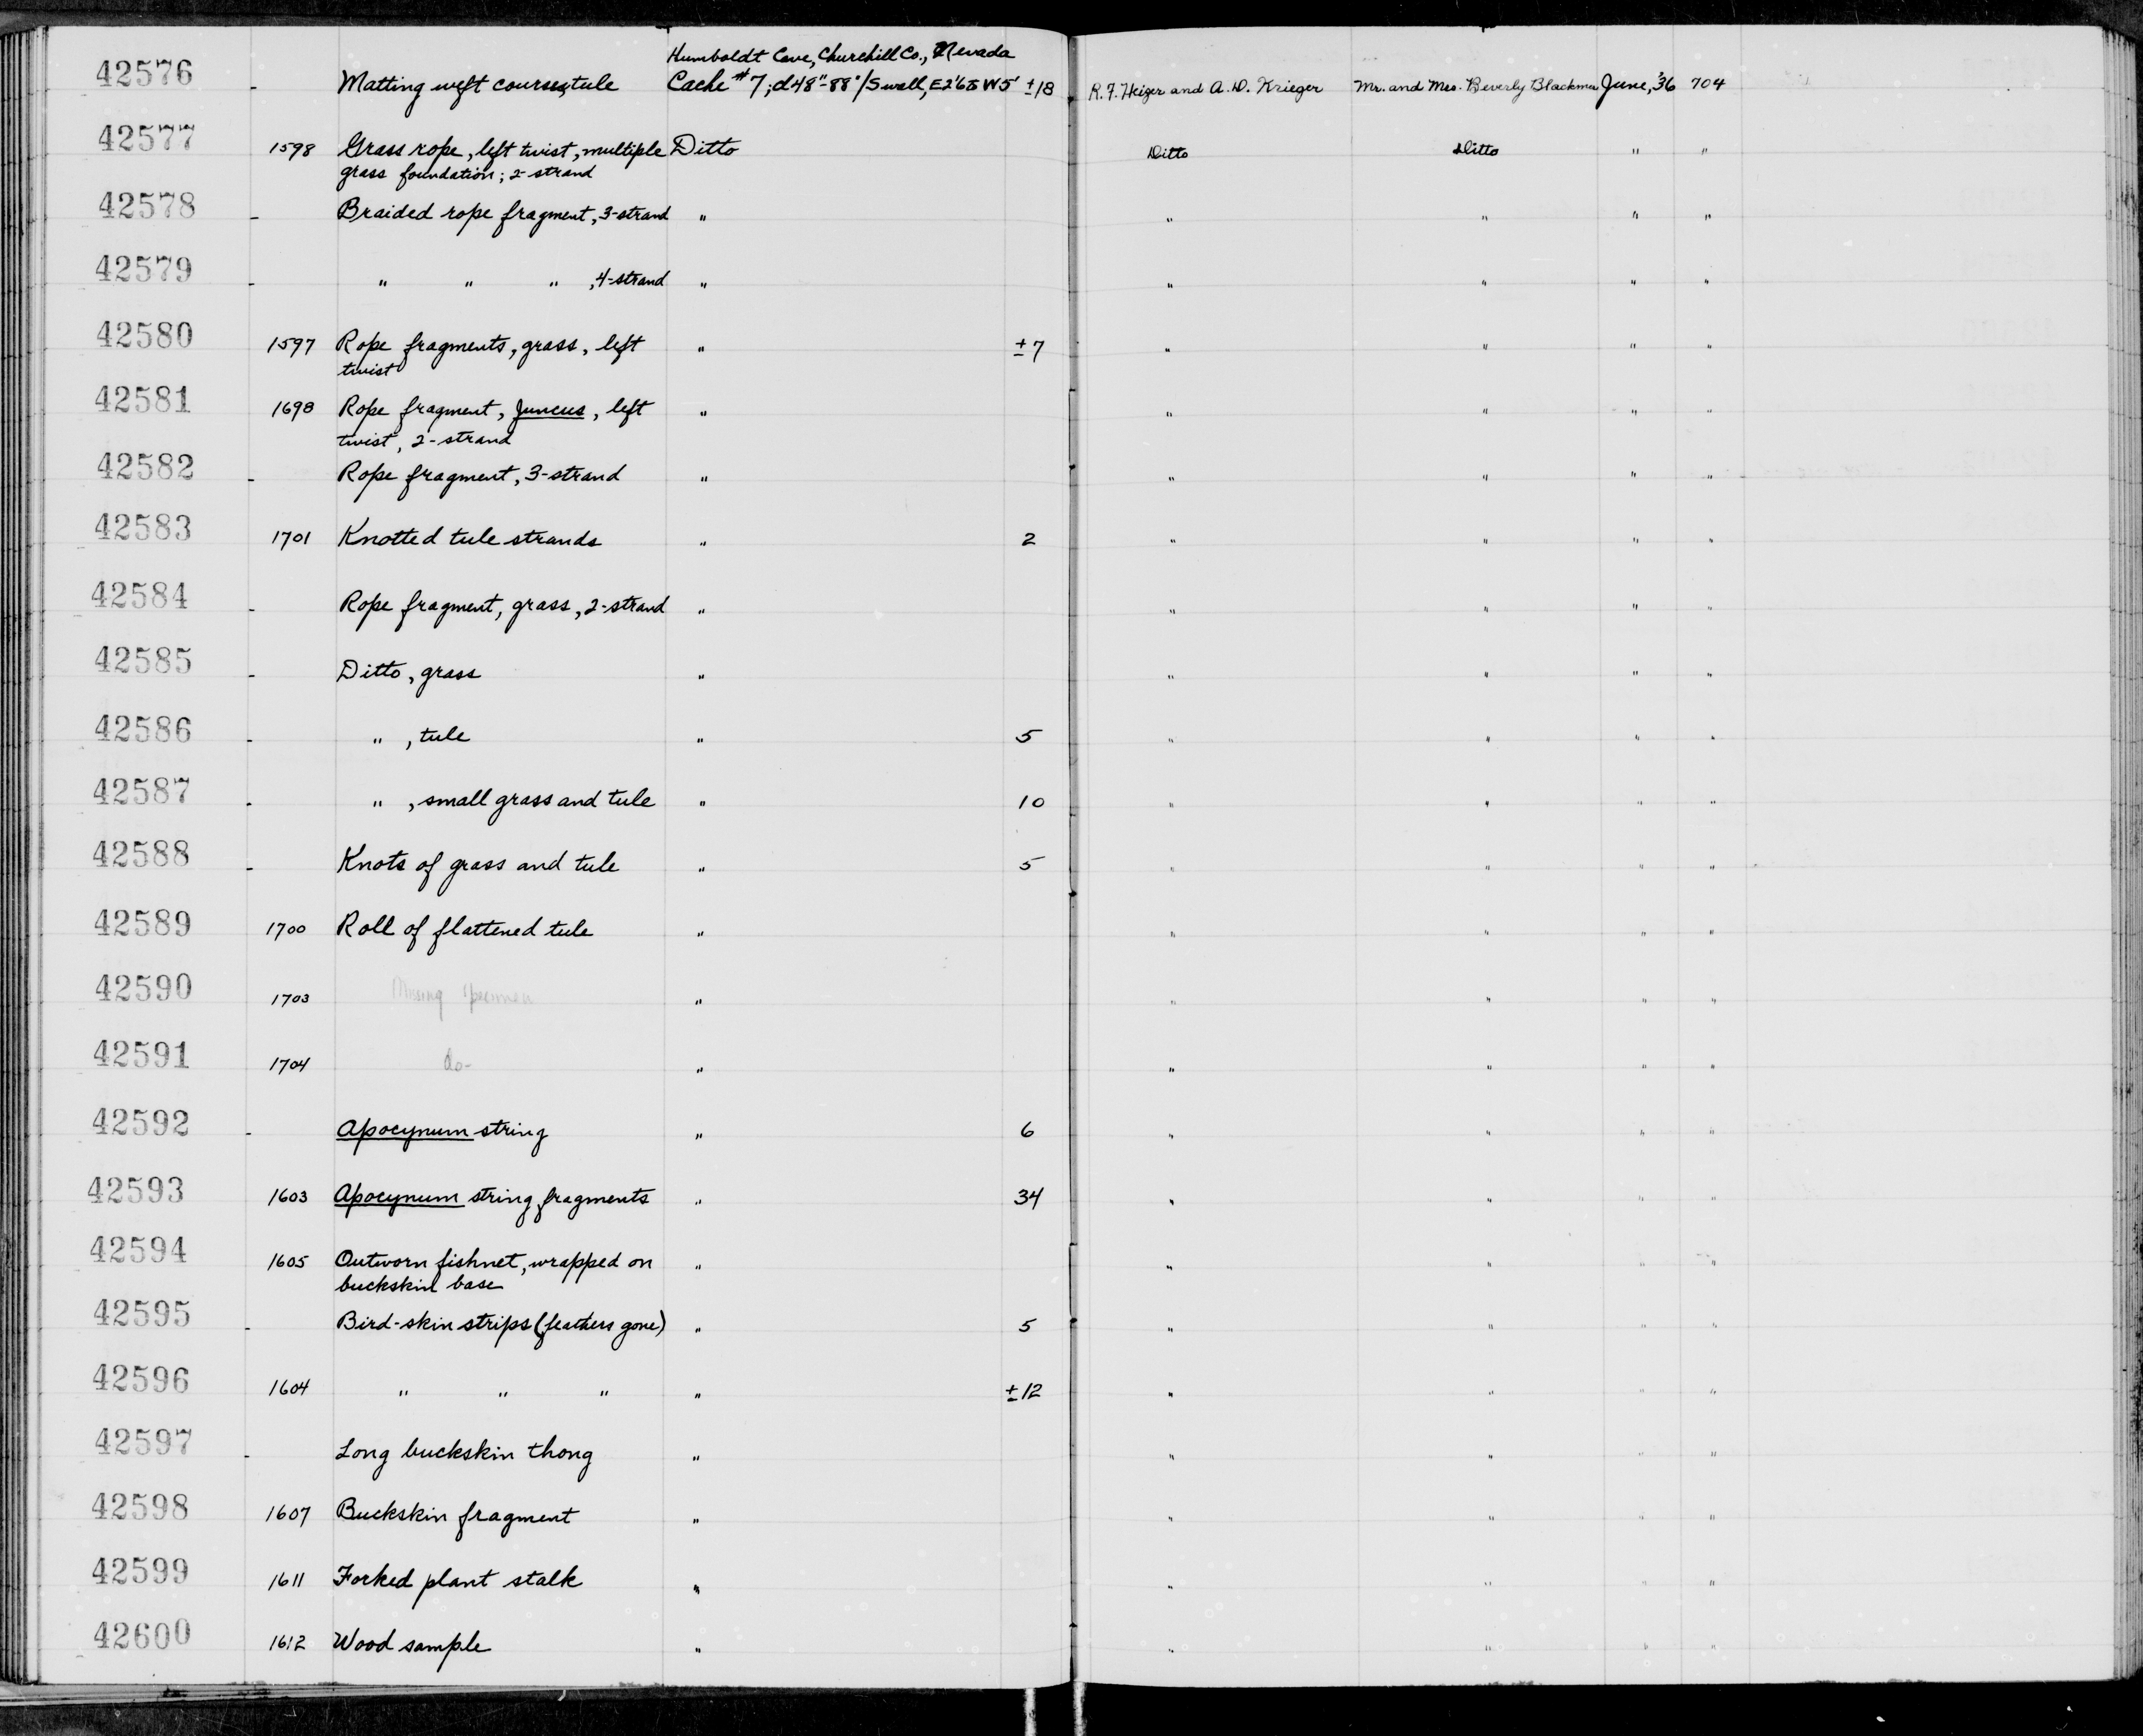 Humboldt Cave, Churchill Co., Nevada
42576 - Matting weft courses, tule Cache #7; d48"-88"/S wall, E2'6 to W5' ±18 R.F. Heizer and A.D. Krieger Mr. and Mrs. Beverly Blackmer June, '36 704
42577 1598 Grass rope, left twist, multiple Ditto Ditto Ditto " "
grass foundation; 2-strand
42578 - Braided rope fragment, 3-strand " " " " "
42579 - " " " , 4-strand " " " " "
42580 1597 Rope fragments, grass, left " ±7 " " " "
twist
42581 1698 Rope fragment, Juncus, left " " " " "
twist, 2-strand
42582 - Rope fragment, 3-strand " " " " "
42583 1701 Knotted tule strands " 2 " " " "
42584 - Rope fragment, grass, 2-strand " " " " "
42585 - Ditto, grass " " " " "
42586 - " , tule " 5 " " " "
42587 - " , small grass and tule " 10 " " " "
42588 - Knots of grass and tule " 5 " " " "
42589 1700 Roll of flattened tule " " " " "
42590 1703 Missing specimen " " " " "
42591 1704 do- " " " " "
42592 - Apocynum string " 6 " " " "
42593 1603 Apocynum string fragments " 34 " " " "
42594 1605 Outworn fishnet, wrapped on " " " " "
buckskin base
42595 - Bird-skin strips (feathers gone) " 5 " " " "
42596 1604 " " " " ±12 " " " "
42597 - Long buckskin thong " " " " "
42598 1607 Buckskin fragment " " " " "
42599 1611 Forked plant stalk " " " " "
42600 1612 Wood sample " " " " "